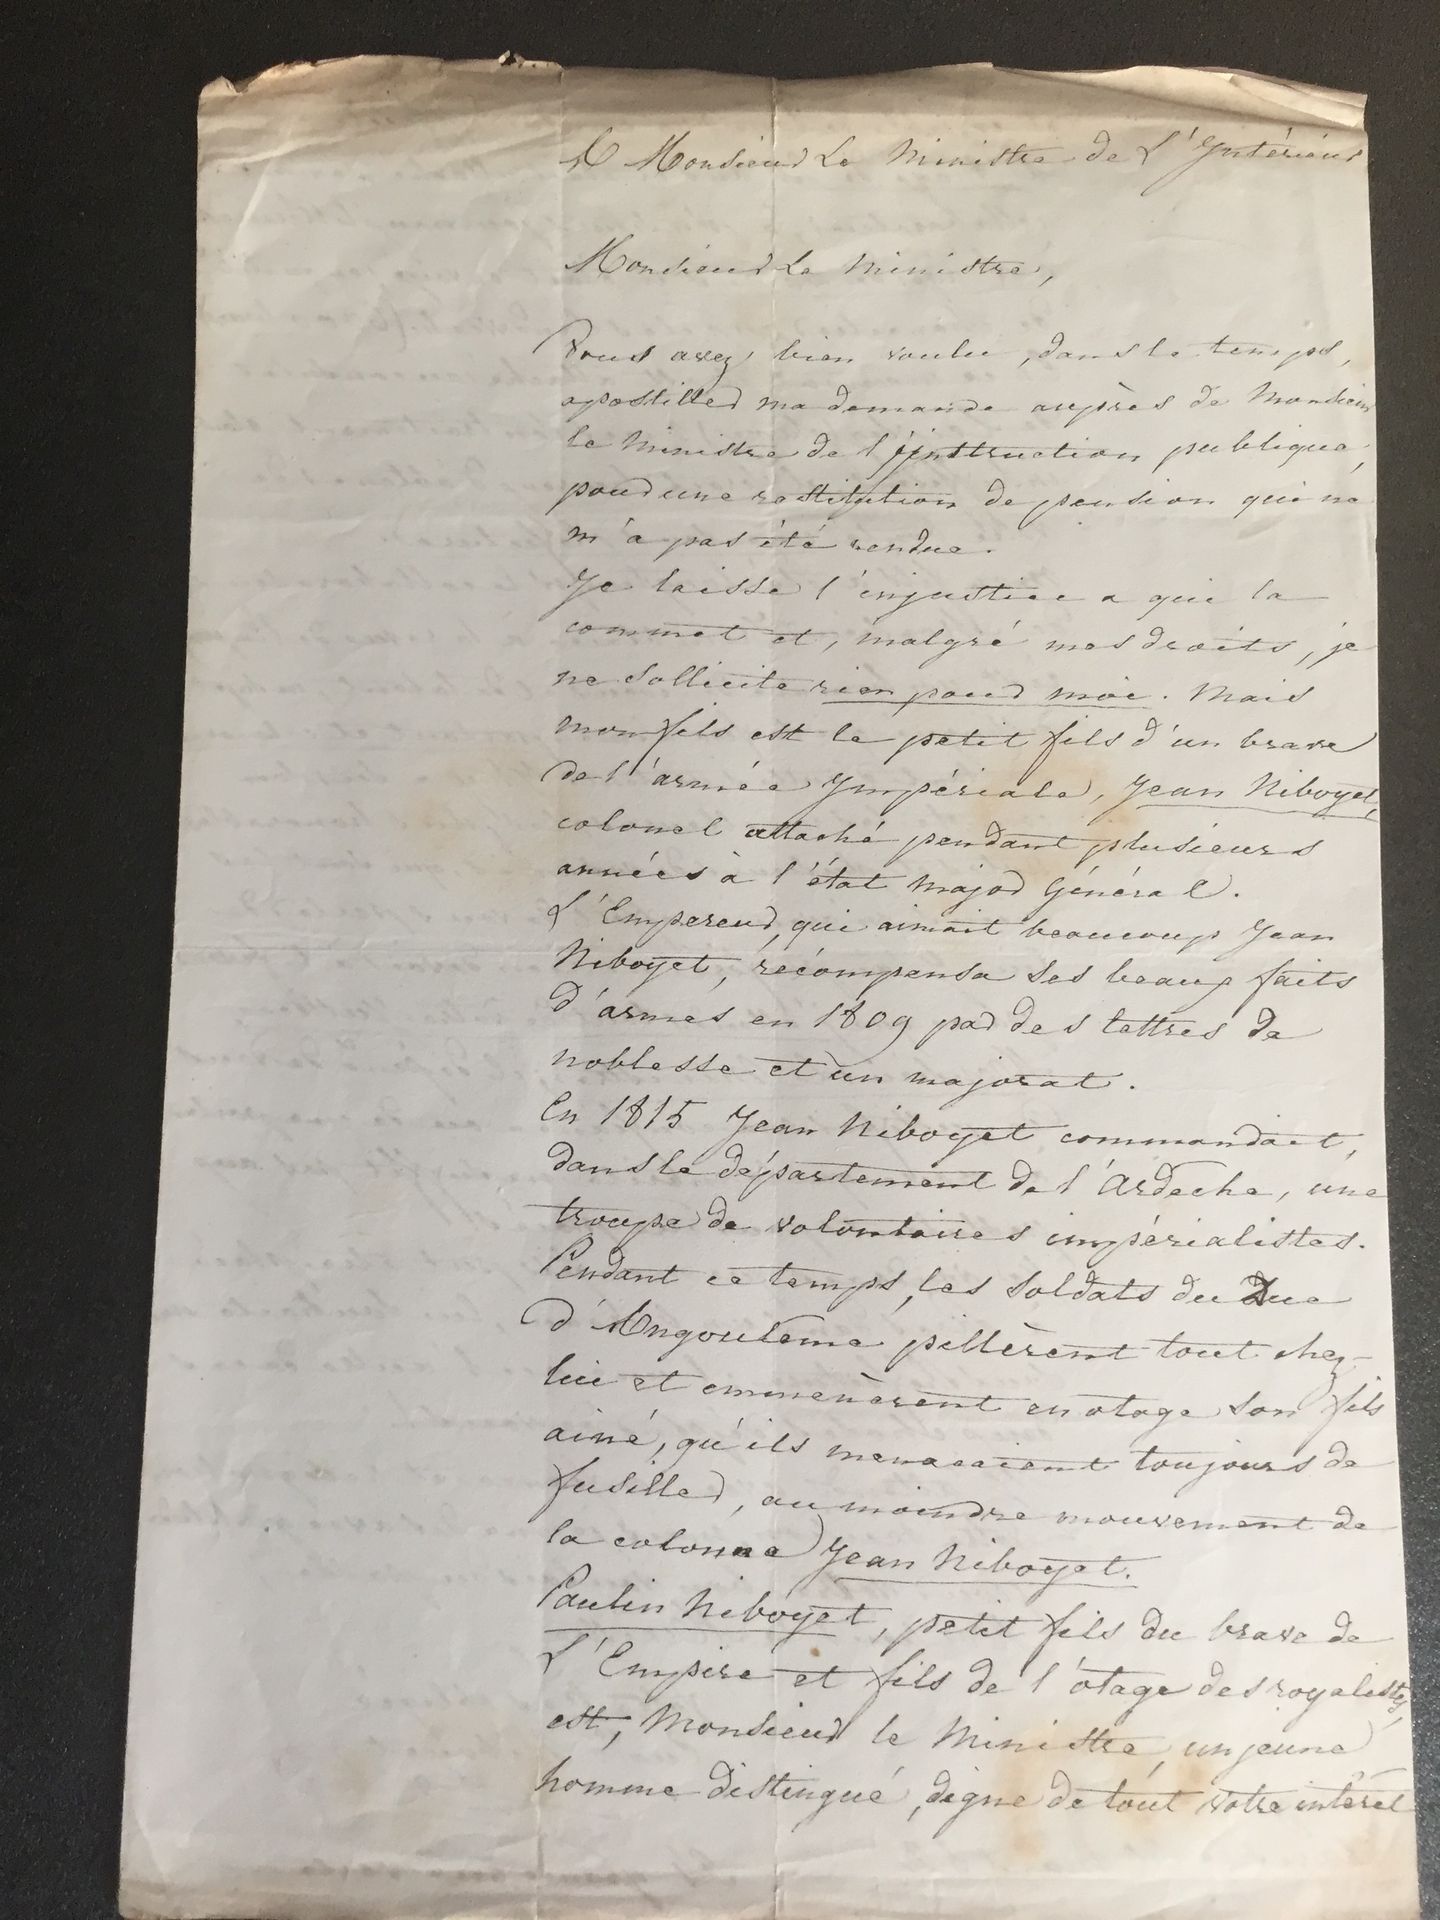 A Monsieur Le Ministre de L'Intérieur
Monsieur Le Ministre,
Vous avez bien voulu, dans le temps,
apostiller ma demande auprès de Monsieur
le Ministre de l'instruction publique,
pour une restitution de pension qui ne
m'a pas été rendue.
Je laisse l'injustice a qui la
commet et, malgré mes droits, je
ne sollicite rien pour moi. Mais
mon fils est le petit fils d'un brave
de l'armée Impériale, Jean Niboyet,
colonel attaché pendant plusieurs
années à l'état major Général.
L'Empereur, qui aimait beaucoup Jean
Niboyet, récompensa ses beaux faits
d'armes en 1809 par des lettres de
noblesse et un majorat.
En 1815 Jean Niboyet commandait,
dans le département de l'Ardeche, une
troupe de volontaires impérialistes.
Pendant ce temps, les soldats du Duc
d'Angoulême pillèrent tout chez-
lui et emmenèrent en otage son fils
ainé, qu'ils menacaient toujours de
fusiller, au moindre mouvement de
la colonne Jean Niboyet.
Paulin Niboyet, petit fils du brave de
L'Empire et fils de l'otage des royalistes,
est, Monsieur le Ministre, un jeune
homme distingué, digne de tout votre intérêt